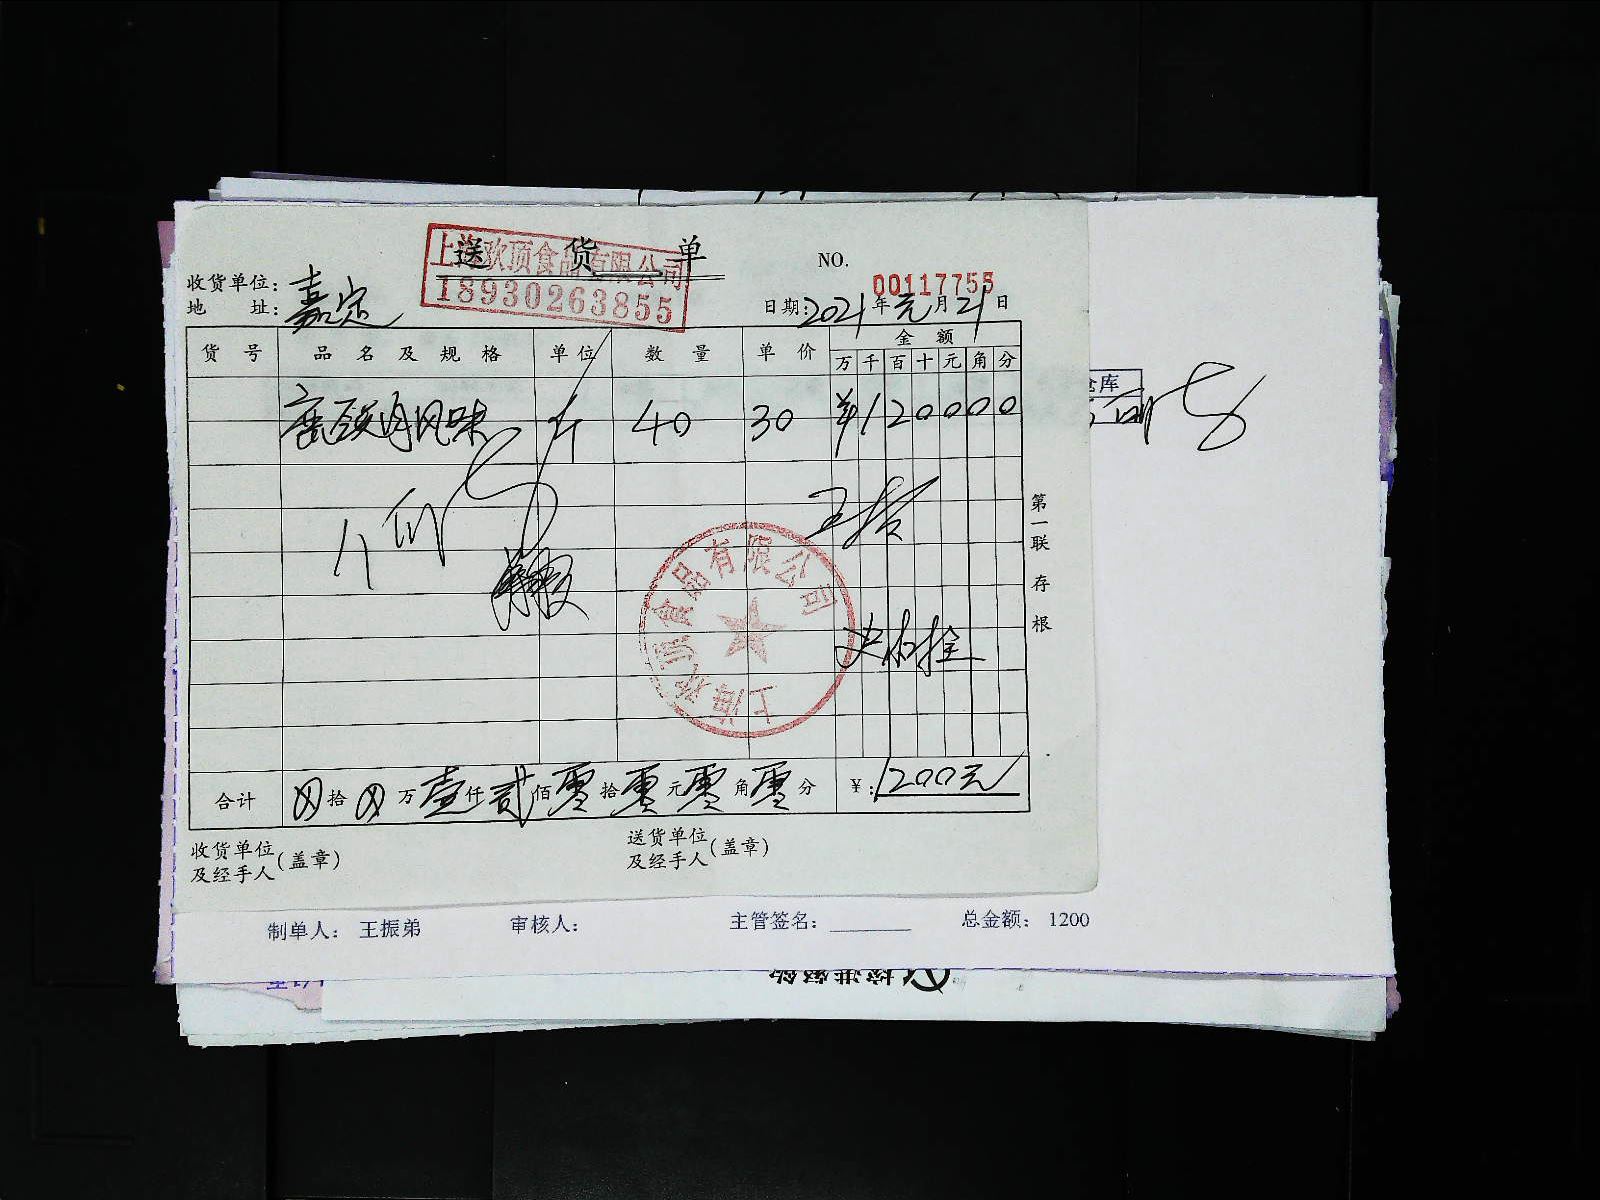 送货单
上海欧顶食品有限公司
18930263855
NO. 00117755
收货单位:
地 址: 嘉定
日期: 2021年元月21日
货号 品名及规格 单位 数量 单价 金额
万 千 百 十 元 角 分
风味 斤 40 30 ¥120000
第一联 存根
上海欧顶食品有限公司
合计 拾 万 壹仟贰佰零拾零元零角零分 ¥: 1200元
收货单位及经手人(盖章)
送货单位及经手人(盖章)
仓库
制单人: 王振弟 审核人: 主管签名: 总金额: 1200